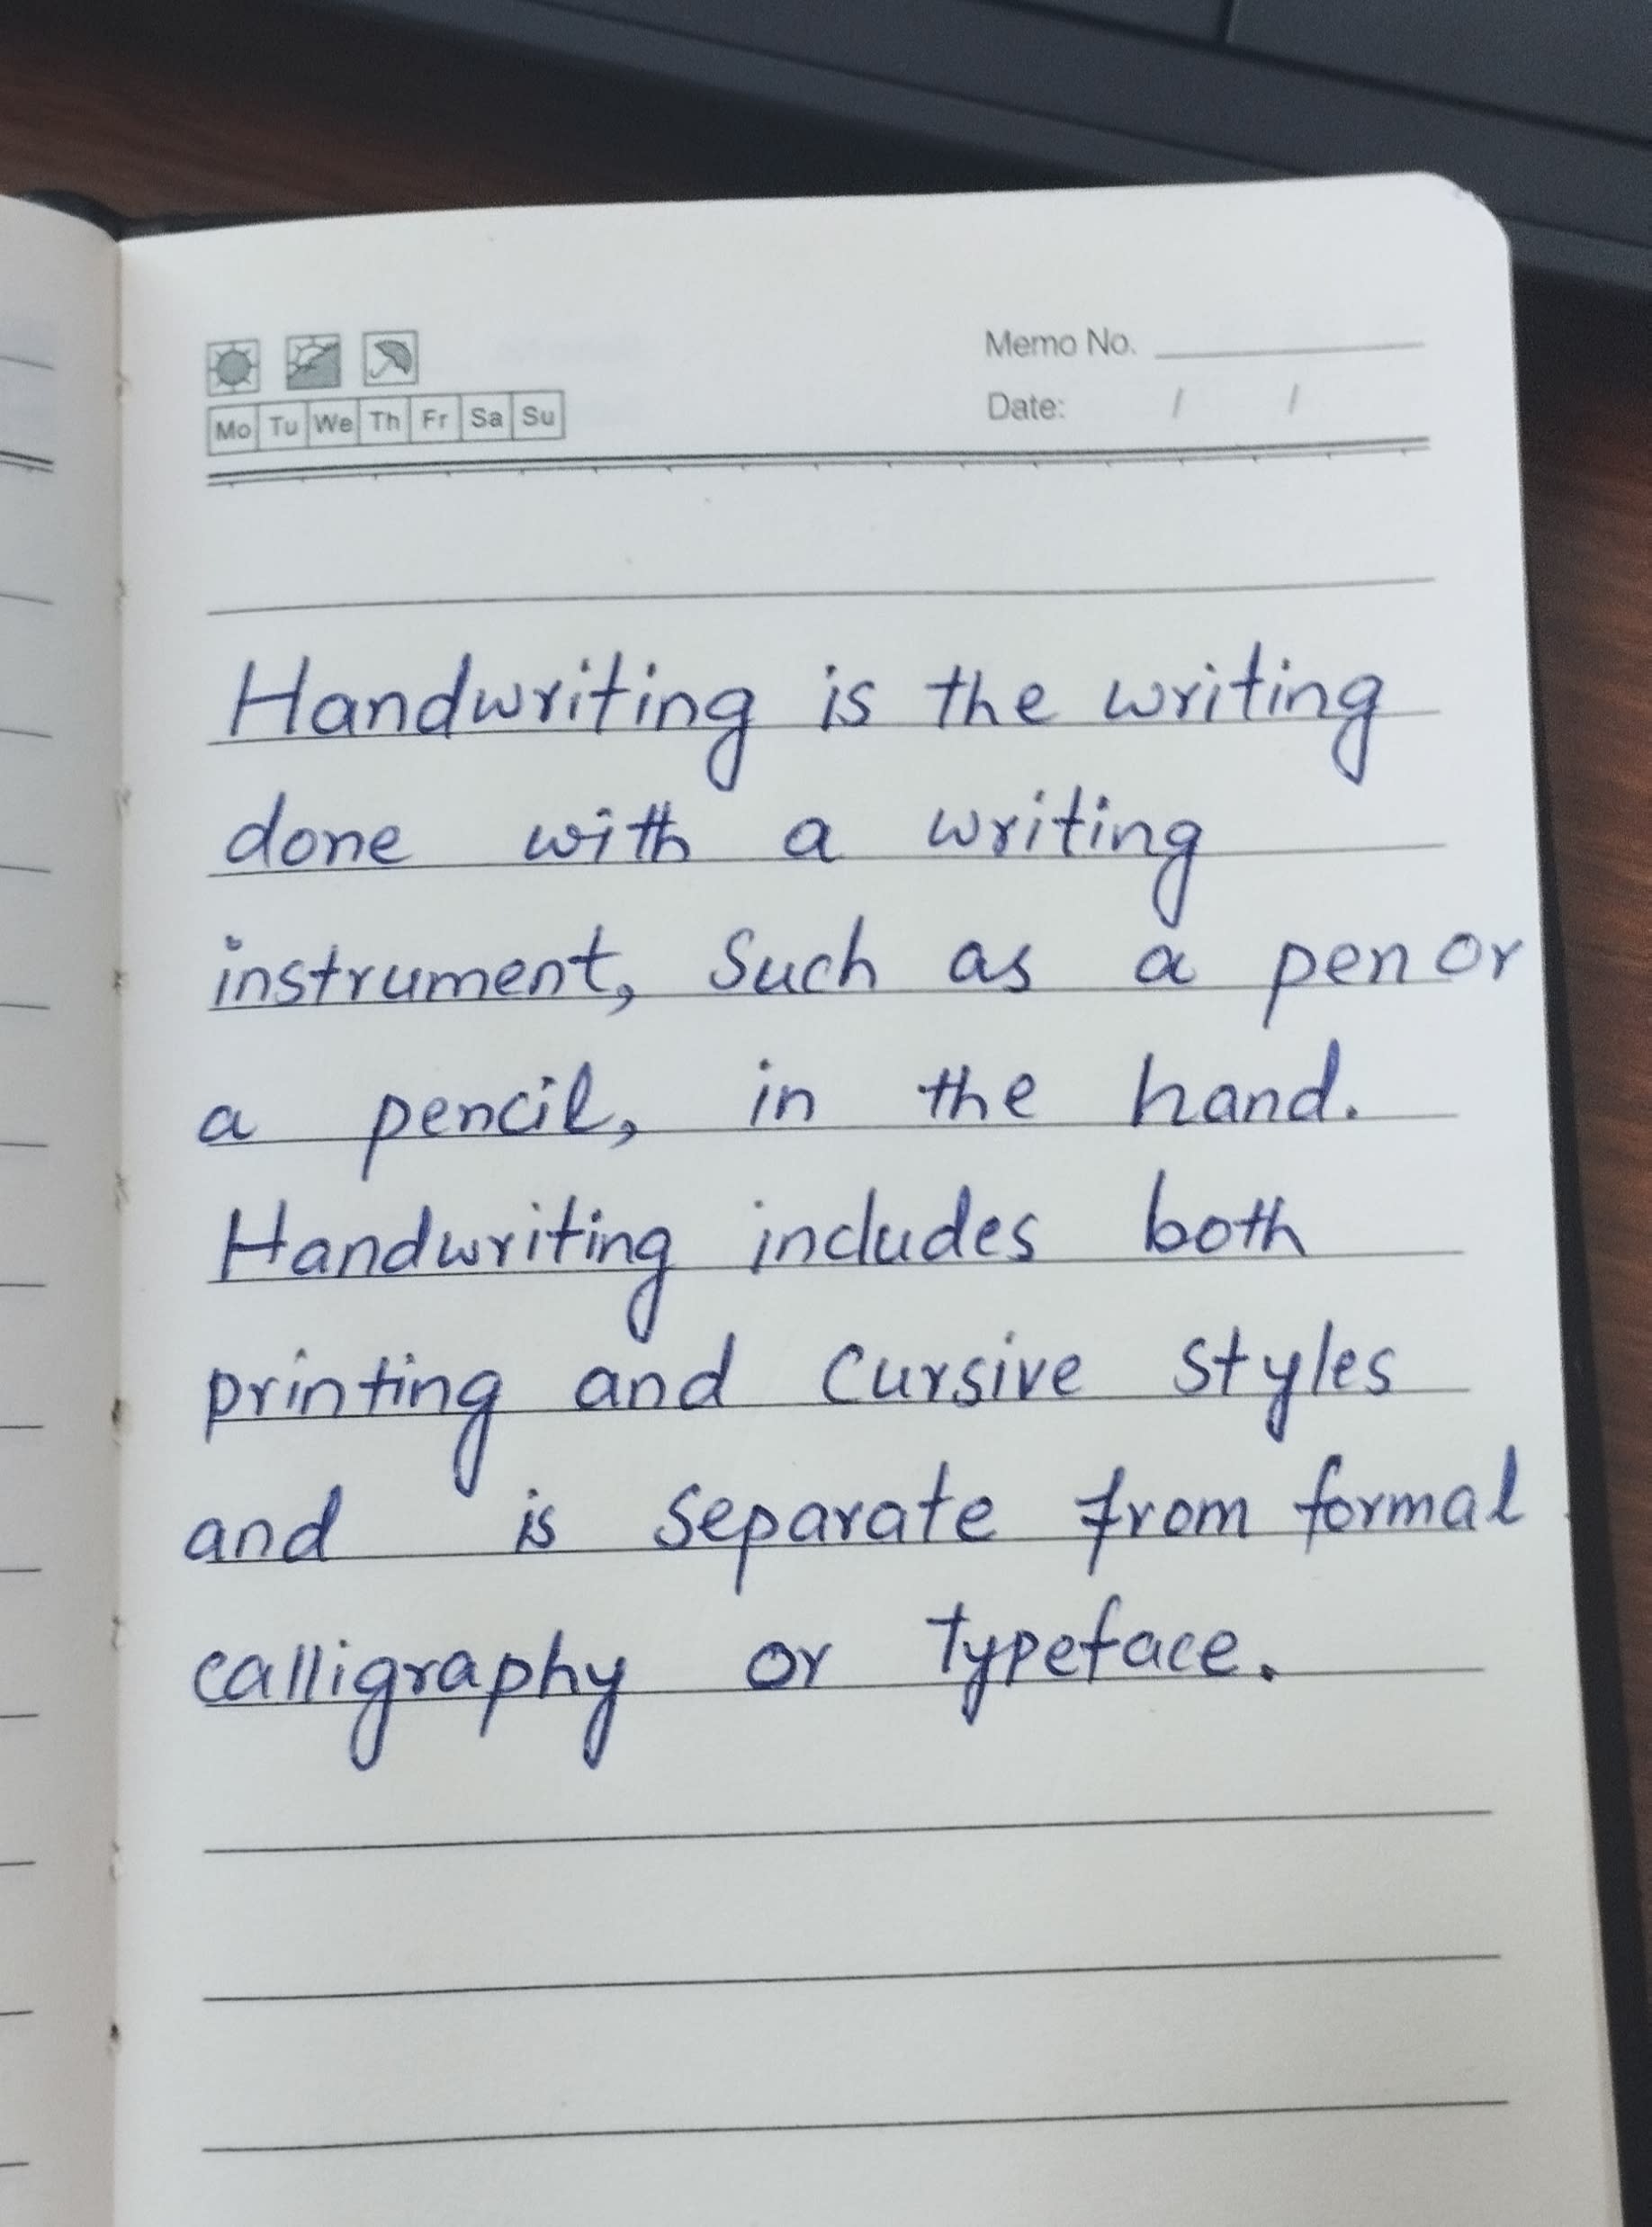 Memo No.
Mo Tu We Th Fr Sa Su
Date: / /
Handwriting is the writing
done with a writing
instrument, Such as a pen or
a pencil, in the hand.
Handwriting includes both
printing and cursive styles
and is separate from formal
calligraphy or typeface.